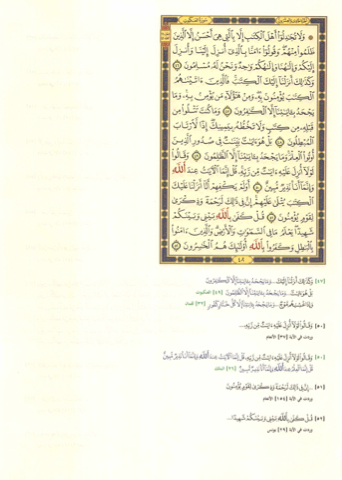 ۞ وَلَا تُجَٰدِلُوٓا۟ أَهْلَ ٱلْكِتَٰبِ إِلَّا بِٱلَّتِى هِىَ أَحْسَنُ إِلَّا ٱلَّذِينَ
ظَلَمُوا۟ مِنْهُمْ ۖ وَقُولُوٓا۟ ءَامَنَّا بِٱلَّذِىٓ أُنزِلَ إِلَيْنَا وَأُنزِلَ
إِلَيْكُمْ وَإِلَٰهُنَا وَإِلَٰهُكُمْ وَٰحِدٌ وَنَحْنُ لَهُۥ مُسْلِمُونَ ٤٦
وَكَذَٰلِكَ أَنزَلْنَآ إِلَيْكَ ٱلْكِتَٰبَ ۚ فَٱلَّذِينَ ءَاتَيْنَٰهُمُ
ٱلْكِتَٰبَ يُؤْمِنُونَ بِهِۦ ۖ وَمِنْ هَٰٓؤُلَآءِ مَن يُؤْمِنُ بِهِۦ ۚ وَمَا
يَجْحَدُ بِـَٔايَٰتِنَآ إِلَّا ٱلْكَٰفِرُونَ ٤٧ وَمَا كُنتَ تَتْلُوا۟ مِن
قَبْلِهِۦ مِن كِتَٰبٍ وَلَا تَخُطُّهُۥ بِيَمِينِكَ ۖ إِذًا لَّٱرْتَابَ
ٱلْمُبْطِلُونَ ٤٨ بَلْ هُوَ ءَايَٰتٌۢ بَيِّنَٰتٌ فِى صُدُورِ ٱلَّذِينَ
أُوتُوا۟ ٱلْعِلْمَ ۚ وَمَا يَجْحَدُ بِـَٔايَٰتِنَآ إِلَّا ٱلظَّٰلِمُونَ ٤٩ وَقَالُوا۟
لَوْلَآ أُنزِلَ عَلَيْهِ ءَايَٰتٌ مِّن رَّبِّهِۦ ۖ قُلْ إِنَّمَا ٱلْءَايَٰتُ عِندَ ٱللَّهِ
وَإِنَّمَآ أَنَا۠ نَذِيرٌ مُّبِينٌ ٥٠ أَوَلَمْ يَكْفِهِمْ أَنَّآ أَنزَلْنَا عَلَيْكَ
ٱلْكِتَٰبَ يُتْلَىٰ عَلَيْهِمْ ۚ إِنَّ فِى ذَٰلِكَ لَرَحْمَةً وَذِكْرَىٰ
لِقَوْمٍ يُؤْمِنُونَ ٥١ قُلْ كَفَىٰ بِٱللَّهِ بَيْنِى وَبَيْنَكُمْ
شَهِيدًا ۖ يَعْلَمُ مَا فِى ٱلسَّمَٰوَٰتِ وَٱلْأَرْضِ ۗ وَٱلَّذِينَ ءَامَنُوا۟
بِٱلْبَٰطِلِ وَكَفَرُوا۟ بِٱللَّهِ أُو۟لَٰٓئِكَ هُمُ ٱلْخَٰسِرُونَ ٥٢
[٤٧] وَكَذَٰلِكَ أَنزَلْنَآ إِلَيْكَ ... وَمَا يَجْحَدُ بِـَٔايَٰتِنَآ إِلَّا ٱلْكَٰفِرُونَ
بَلْ هُوَ ءَايَٰتٌ ... وَمَا يَجْحَدُ بِـَٔايَٰتِنَآ إِلَّا ٱلظَّٰلِمُونَ [٤٩] العنكبوت
وَإِذَا غَشِيَهُم مَّوْجٌ ... وَمَا يَجْحَدُ بِـَٔايَٰتِنَآ إِلَّا كُلُّ خَتَّارٍ كَفُورٍ [٣٢] لقمان
[٥٠] وَقَالُوا۟ لَوْلَآ أُنزِلَ عَلَيْهِ ءَايَٰتٌ مِّن رَّبِّهِ ...
وردت في الآية [٣٧] الأنعام
[٥٠] وَقَالُوا۟ لَوْلَآ أُنزِلَ عَلَيْهِ ءَايَٰتٌ مِّن رَّبِّهِۦ ۖ قُلْ إِنَّمَا ٱلْءَايَٰتُ عِندَ ٱللَّهِ وَإِنَّمَآ أَنَا۠ نَذِيرٌ مُّبِينٌ
قُلْ إِنَّمَا ٱلْعِلْمُ عِندَ ٱللَّهِ وَإِنَّمَآ أَنَا۠ نَذِيرٌ مُّبِينٌ [٢٦] الملك
[٥١] ... إِنَّ فِى ذَٰلِكَ لَرَحْمَةً وَذِكْرَىٰ لِقَوْمٍ يُؤْمِنُونَ
[٥٢] قُلْ كَفَىٰ بِٱللَّهِ بَيْنِى وَبَيْنَكُمْ شَهِيدًا ...
وردت في الآية [٢٩] يونس